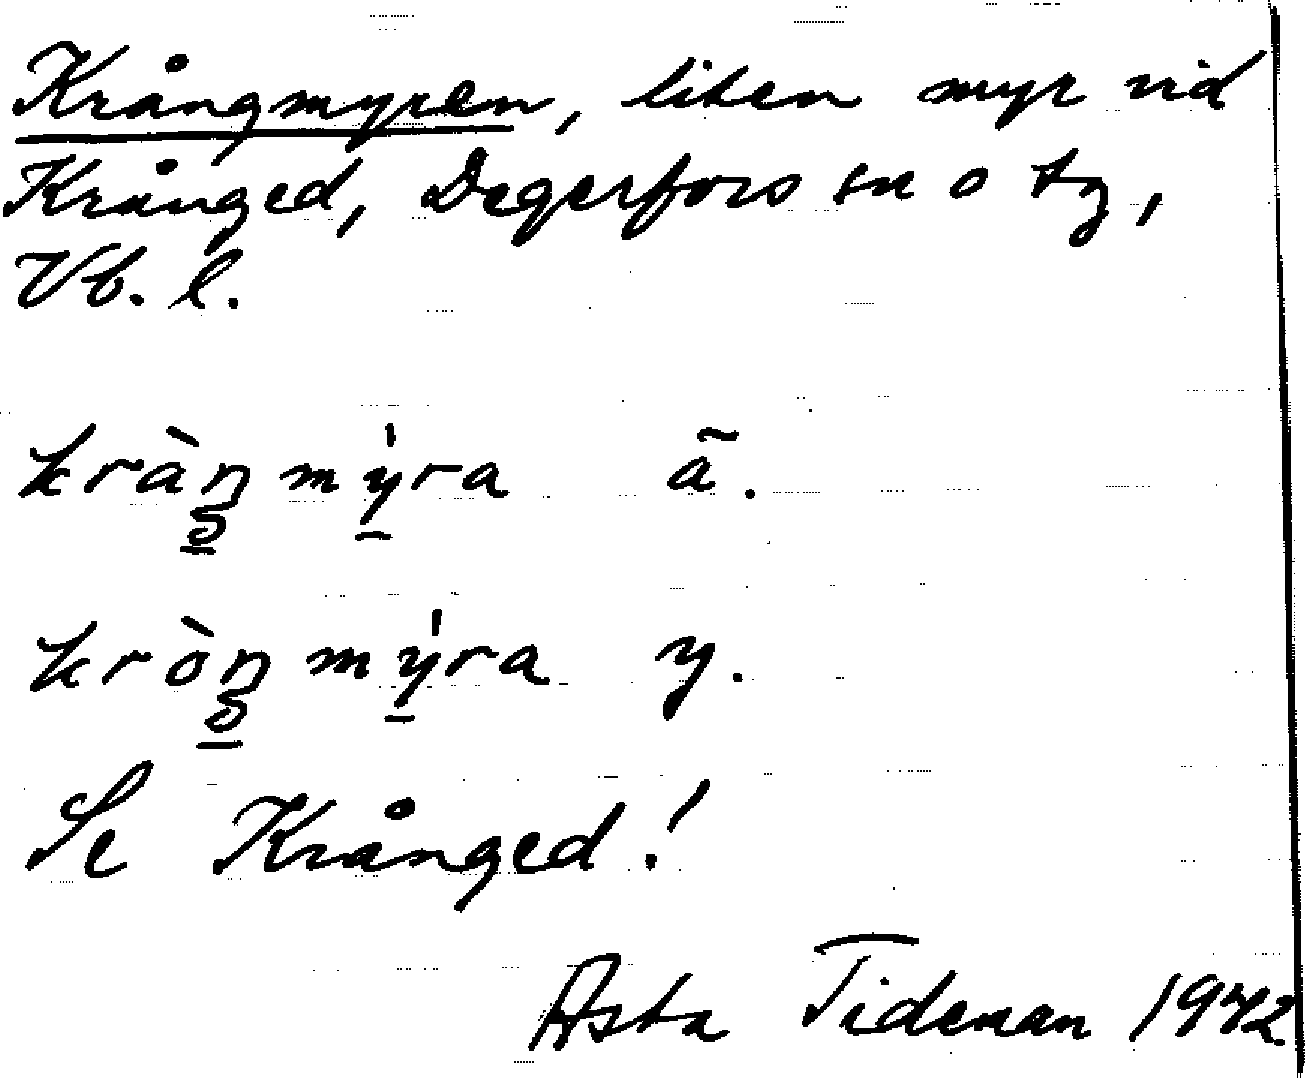 Krångmyren, liten myr vid
Krånged, Degerfors sn o tg,
Vb. l.
kràŋmy̍ra ã.
kròŋmy̍ra y.
Se Krånged!
Asta Tideman 1942